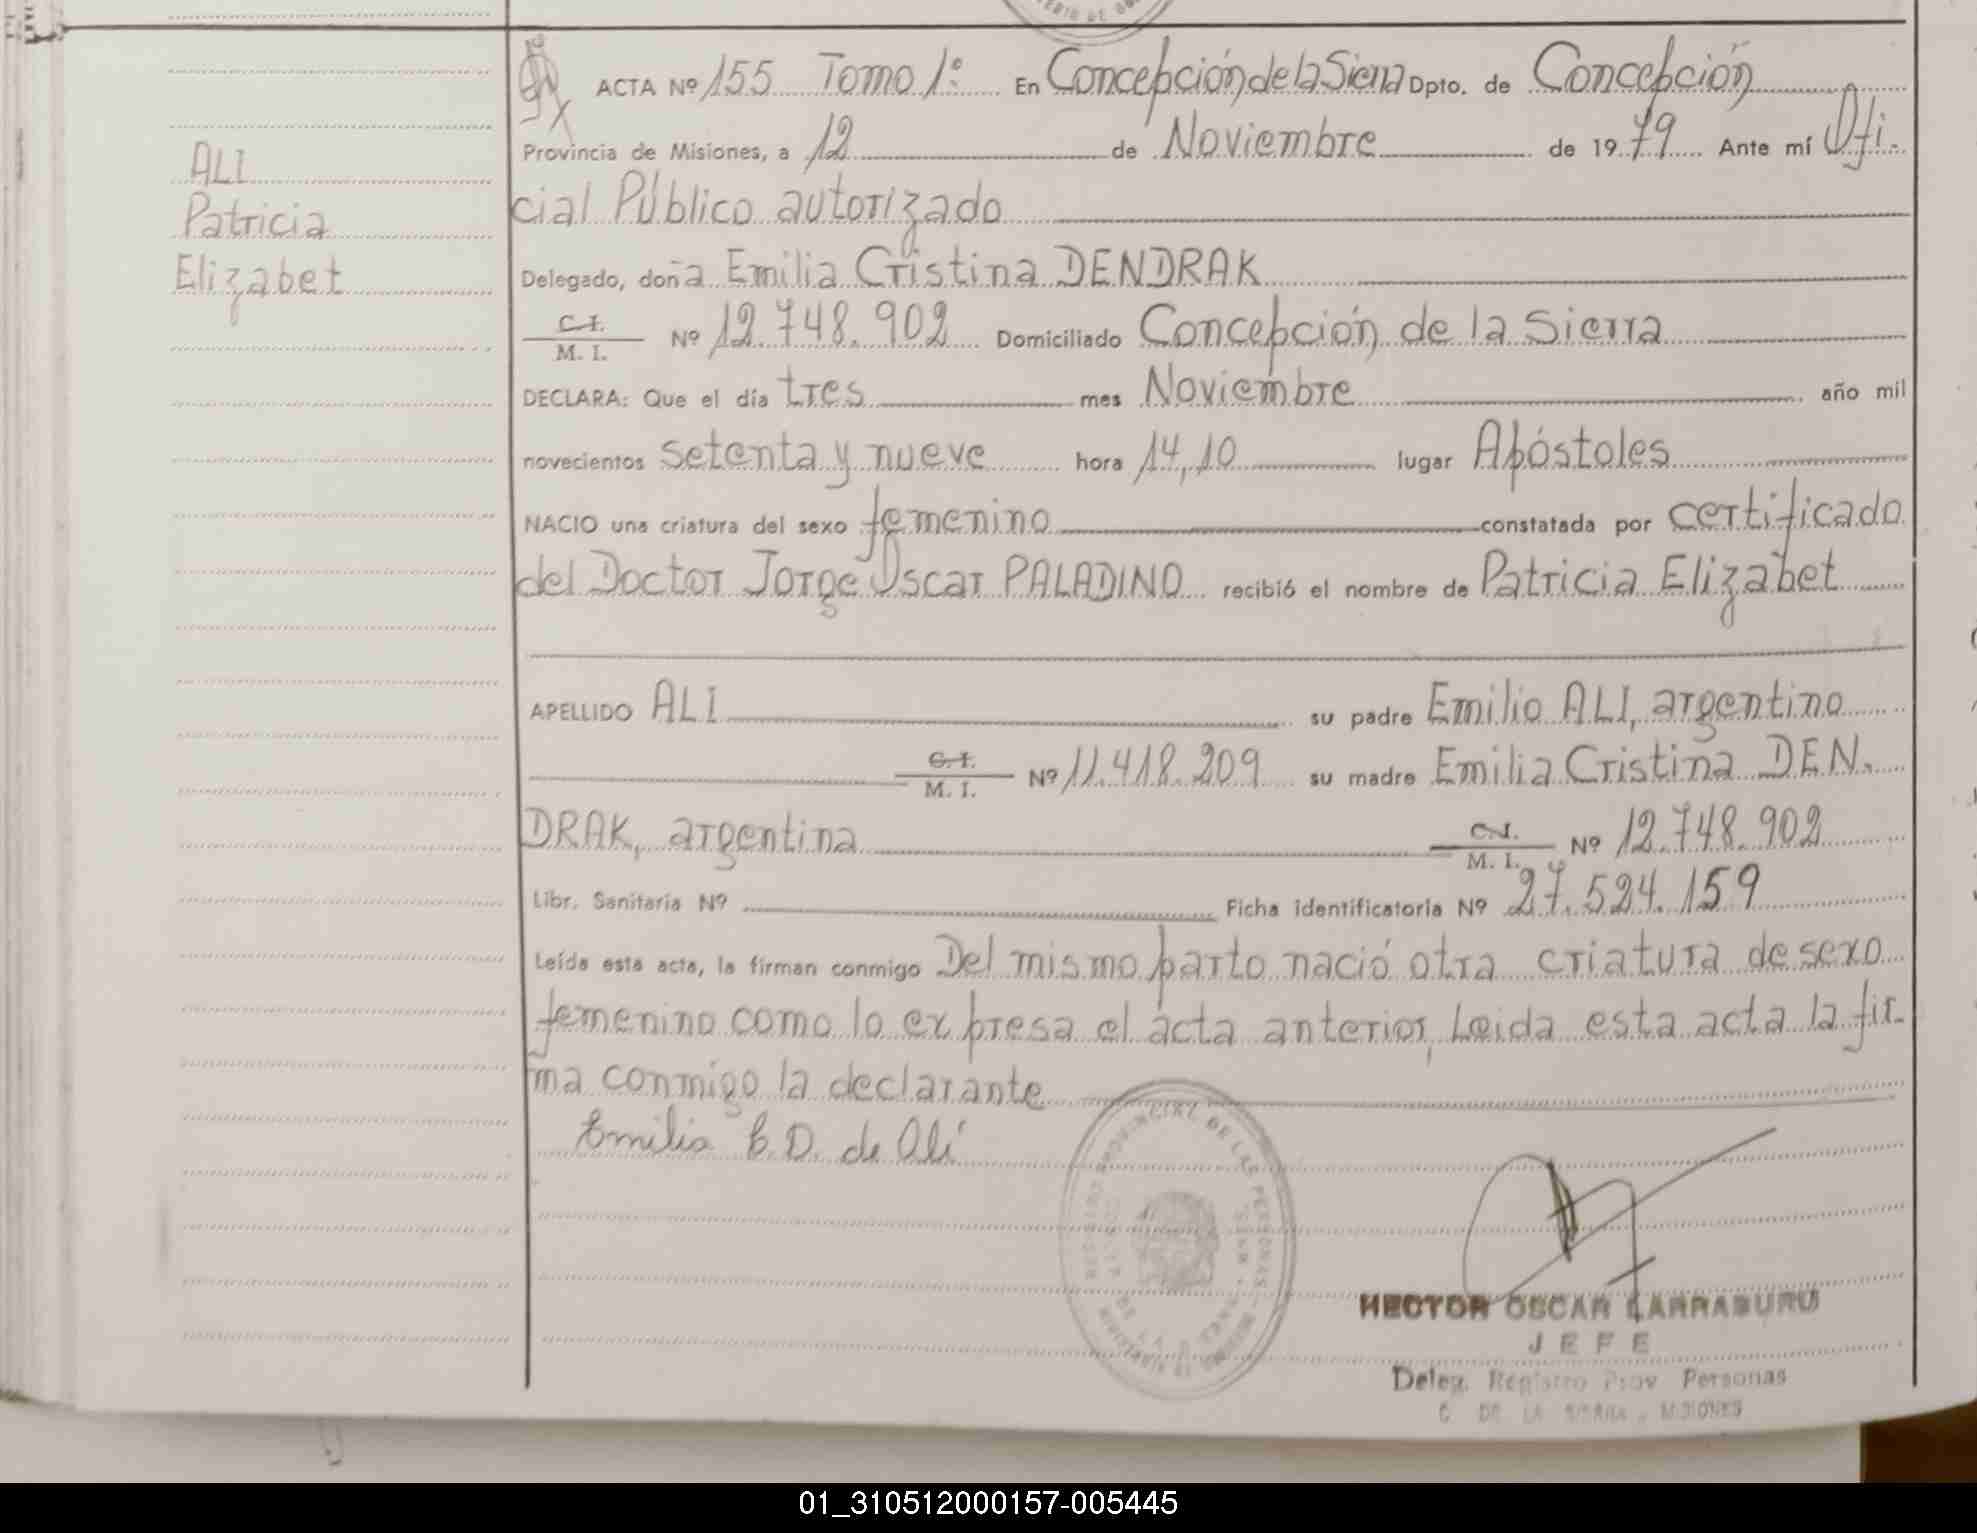 ERIO DE GOB
ACTA Nº 155 Tomo 1º En Concepción de la Sierra Dpto. de Concepción
Provincia de Misiones, a 12 de Noviembre de 1979 Ante mí Ofi-
cial Público autorizado
Delegado, doña Emilia Cristina DENDRAK
C.I. / M. I. Nº 12.748.902 Domiciliado Concepción de la Sierra
DECLARA: Que el día tres mes Noviembre año mil
novecientos setenta y nueve hora 14,10 lugar Apóstoles
NACIO una criatura del sexo femenino constatada por certificado
del Doctor Jorge Oscar PALADINO recibió el nombre de Patricia Elizabet
APELLIDO ALI su padre Emilio ALI, argentino
C.I. / M. I. Nº 11.418.209 su madre Emilia Cristina DEN-
DRAK, argentina C.I. / M. I. Nº 12.748.902
Libr. Sanitaria Nº Ficha identificatoria Nº 27.524.159
Leída esta acta, la firman conmigo Del mismo parto nació otra criatura de sexo
femenino como lo expresa el acta anterior, Leida esta acta la fir-
ma conmigo la declarante
Emilia C. D. de Alí
ALI
Patricia
Elizabet
REGISTRO PROVINCIAL DE LAS PERSONAS
HECTOR OSCAR LARRABURU
JEFE
Deleg. Registro Prov Personas
C DE LA SIERRA - MISIONES
01_310512000157-005445